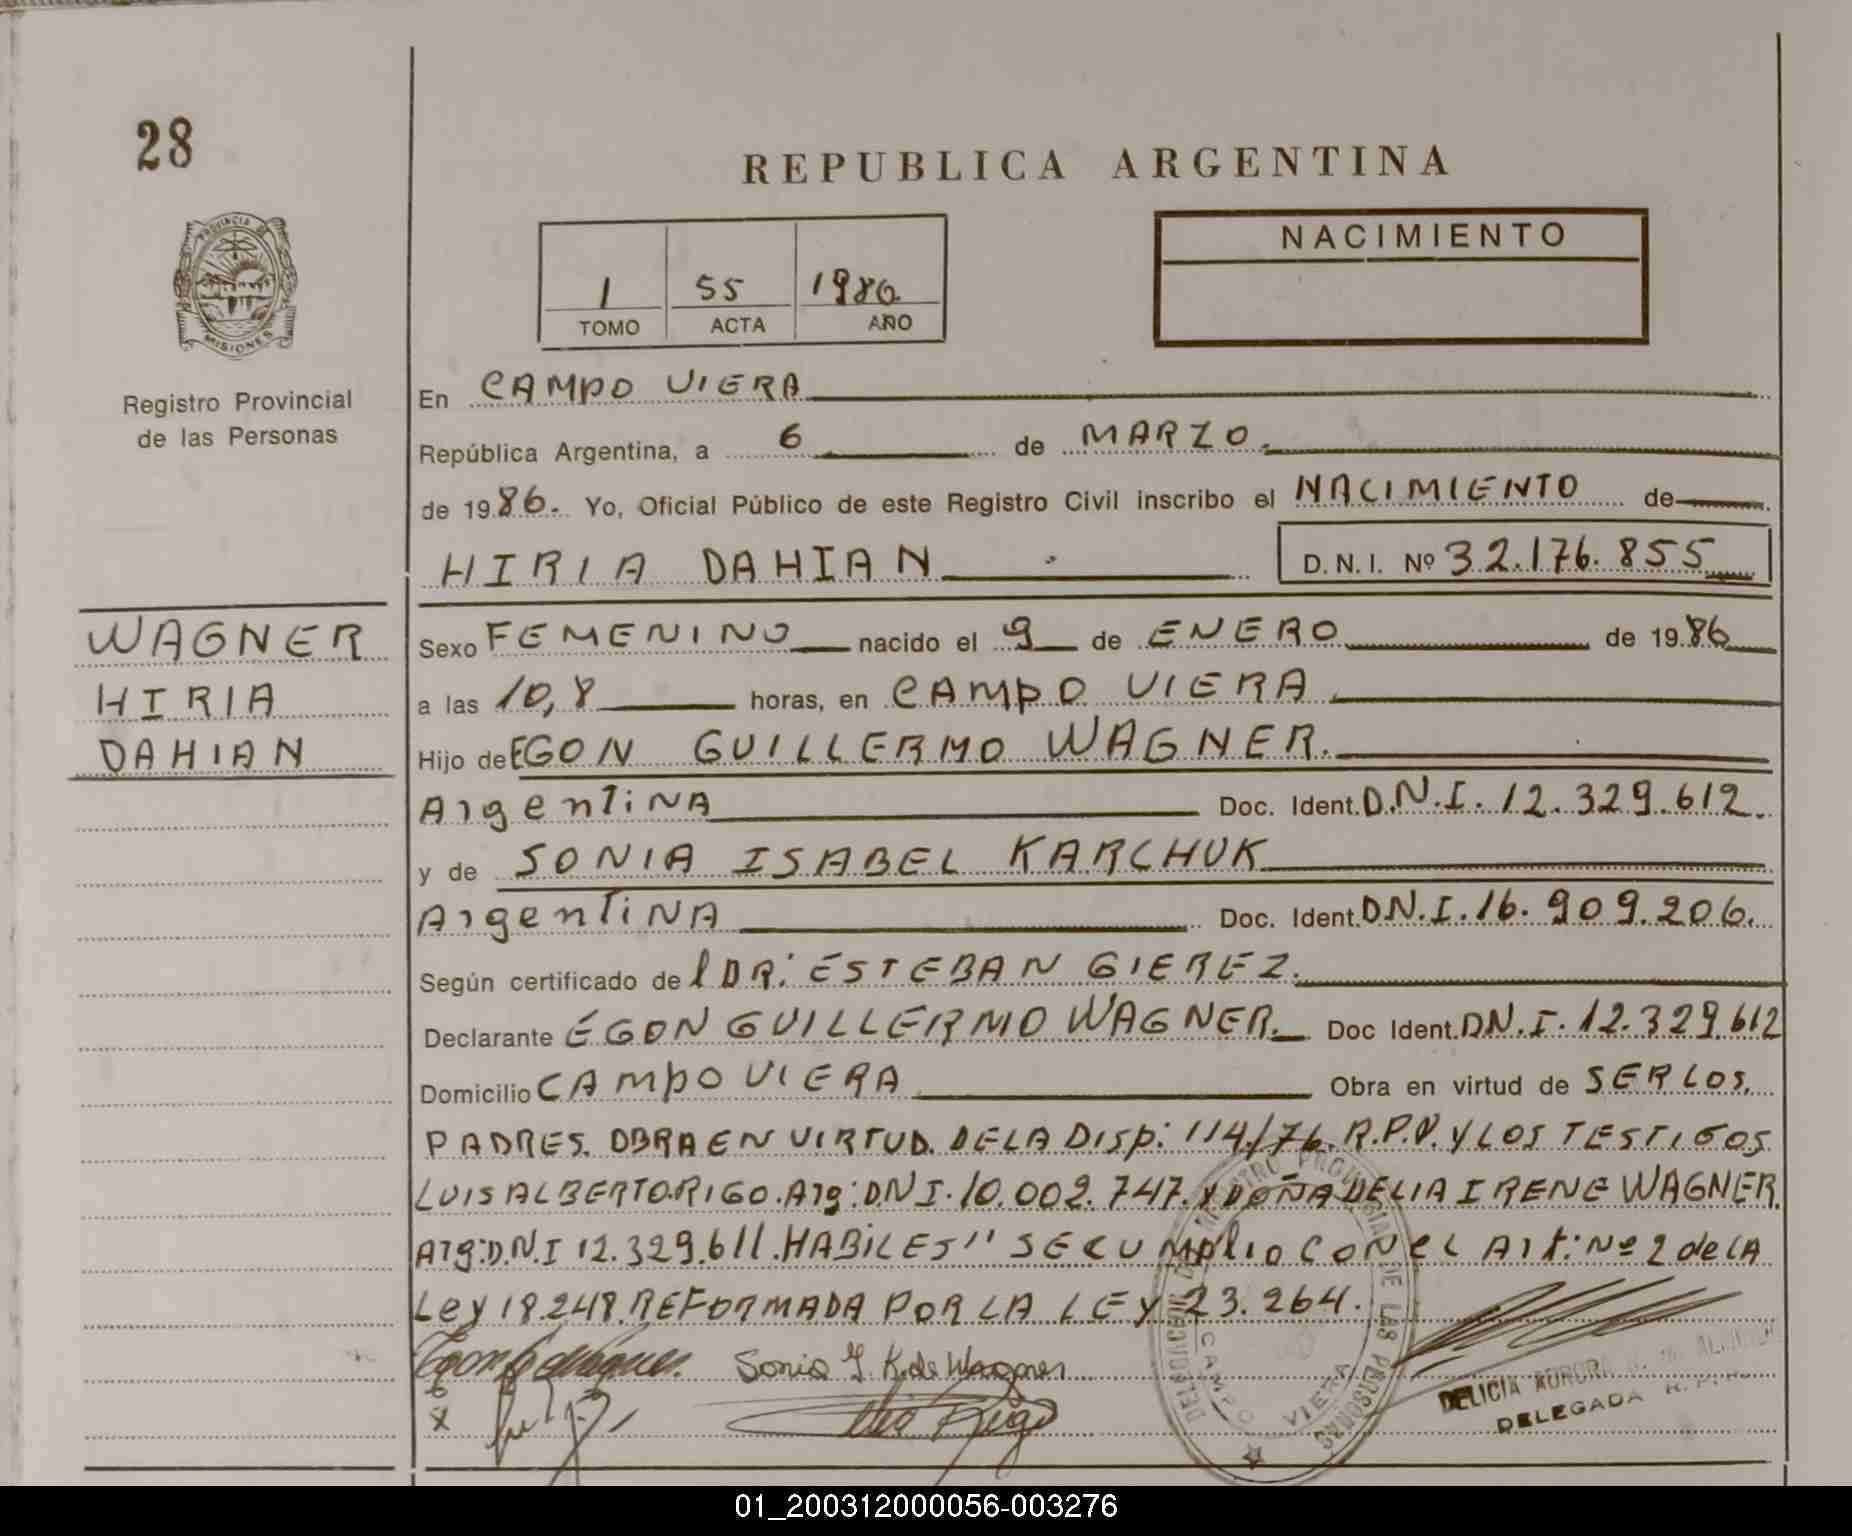 28
REPUBLICA ARGENTINA
PROVINCIA DE
MISIONES
Registro Provincial
de las Personas
1 55 1986
TOMO ACTA AÑO
NACIMIENTO
En CAMPO VIERA
República Argentina, a 6 de MARZO.
de 1986. Yo, Oficial Público de este Registro Civil inscribo el NACIMIENTO de
HIRIA DAHIAN D.N.I. Nº 32.176.855
WAGNER
HIRIA
DAHIAN
Sexo FEMENINO nacido el 9 de ENERO de 1986
a las 10,8 horas, en CAMPO VIERA.
Hijo de EGON GUILLERMO WAGNER.
ArgentiNA Doc. Ident. D.N.I. 12.329.612.
y de SONIA ISABEL KARCHUK
ArgentiNA Doc. Ident. D.N.I. 16.909.206.
Según certificado del DR: ESTEBAN GIEREZ.
Declarante EGON GUILLERMO WAGNER. Doc Ident. D.N.I. 12.329.612
Domicilio CAMPO VIERA Obra en virtud de SER LOS
PADRES. OBRA EN VIRTUD. DE LA DISP: 114/76. R.P.P. Y LOS TESTIGOS
LUIS ALBERTO.RIGO. Arg: D.N.I. 10.002.747. Y DOÑA DELIA IRENE WAGNER.
Arg: D.N.I 12.329.611. HABILES" SE CUMPLIO CON EL Art: Nº 2 de LA
Ley 18.248. REFORMADA POR LA LEY 23.264.
Sonia I. K. de Wagner
Rigo
DELEGACION DEL REGISTRO PROVINCIAL DE LAS PERSONAS
CAMPO VIERA
DELICIA AURORA
DELEGADA
01_200312000056-003276